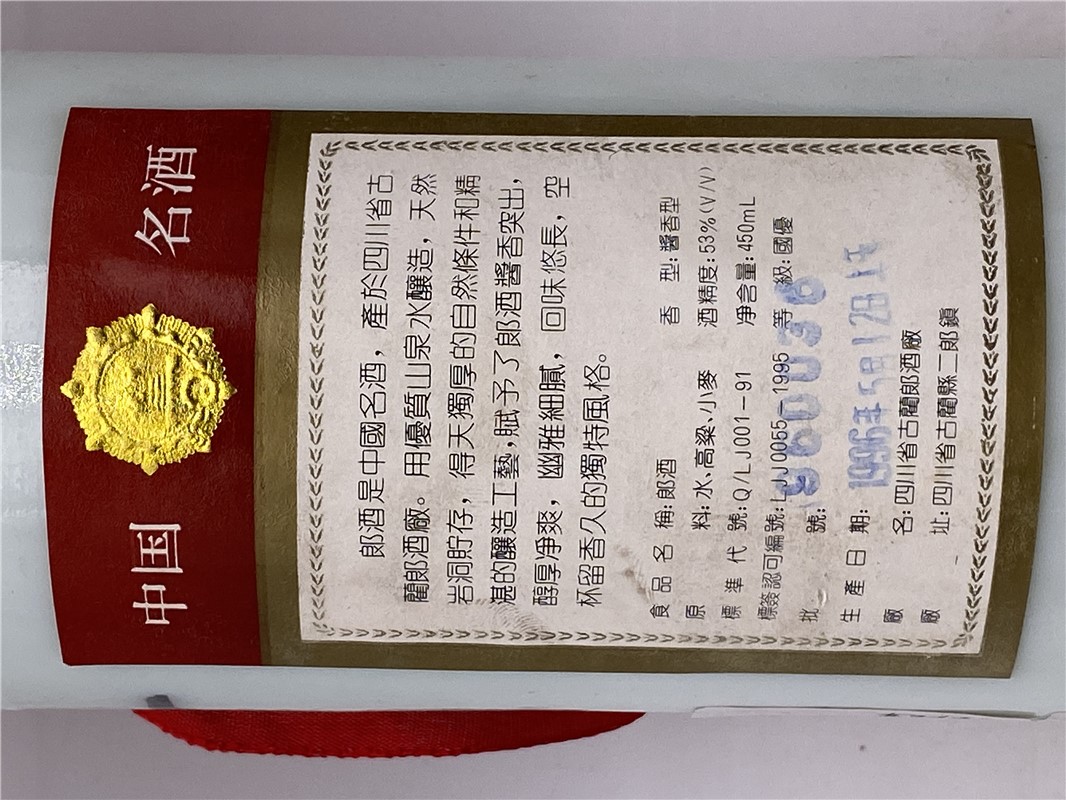 中国 名酒
郎酒是中國名酒，產於四川省古
藺郎酒廠。用優質山泉水釀造，天然
岩洞貯存，得天獨厚的自然條件和精
湛的釀造工藝,賦予了郎酒醬香突出，
醇厚淨爽，幽雅細膩，回味悠長，空
杯留香久的獨特風格。
食品名稱:郎酒 香型:醬香型
原料:水、高粱、小麥 酒精度:53%(V/V)
標準代號:Q/LJ001-91 净含量:450mL
標簽認可編號:LJJ0055-1995 等級:國優
批號:
生產日期: 1996年5月12日
廠名:四川省古藺郎酒廠
廠址:四川省古藺縣二郎鎮